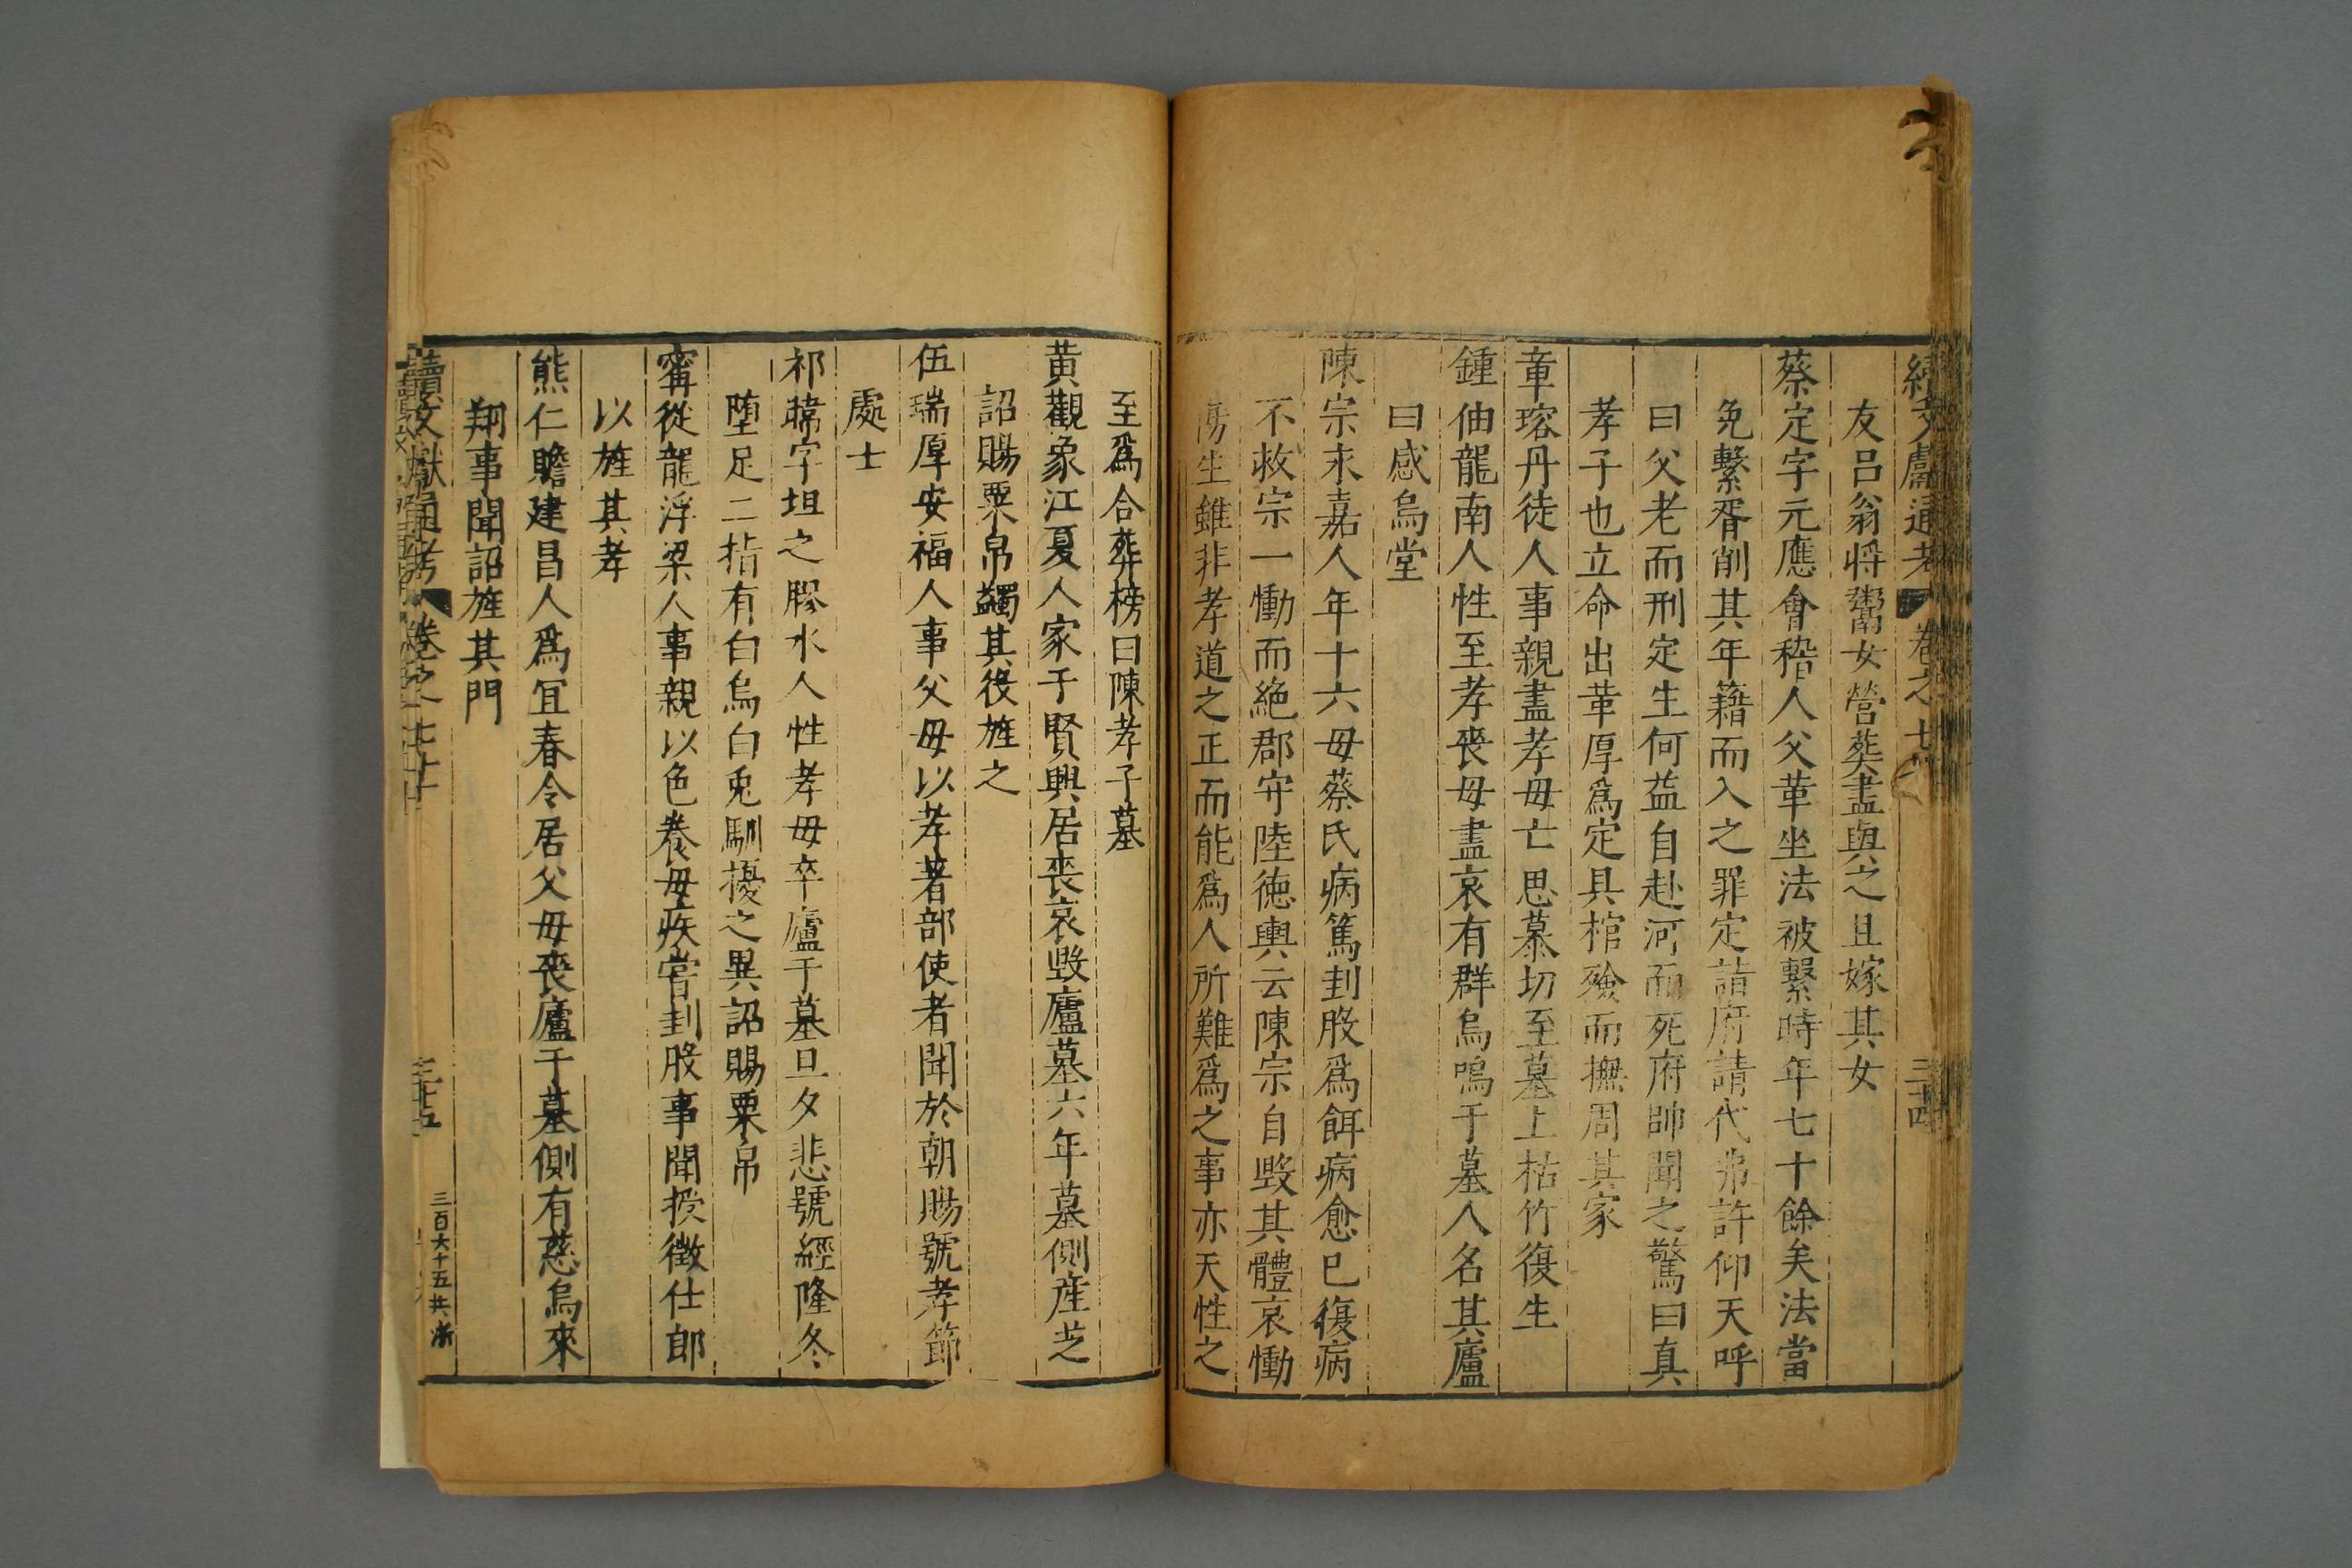 續文獻通考 卷之七十 三十四
友呂翁將鬻女營葬盡與之且嫁其女
蔡定字元應會稽人父革坐法被繫時年七十餘矣法當
免繫胥削其年籍而入之罪定詣府請代弗許仰天呼
曰父老而刑定生何益自赴河而死府帥聞之驚曰真
孝子也立命出革厚爲定具棺殮而撫周其家
章瑢丹徒人事親盡孝母亡思慕切至墓上枯竹復生
鍾伷龍南人性至孝喪母盡哀有群烏鳴于墓人名其廬
曰感烏堂
陳宗永嘉人年十六母蔡氏病篤刲股爲餌病愈已復病
不救宗一慟而絕郡守陸德輿云陳宗自毀其體哀慟
傷生雖非孝道之正而能爲人所難爲之事亦天性之
至爲合葬榜曰陳孝子墓
黃觀象江夏人家于賢興居喪哀毀廬墓六年墓側產芝
詔賜粟帛蠲其役旌之
伍瑞厚安福人事父母以孝著部使者聞於朝賜號孝節
處士
祁暐字坦之膠水人性孝母卒廬于墓旦夕悲號經隆冬
墮足二指有白烏白兎馴擾之異詔賜粟帛
甯從龍浮梁人事親以色養母疾嘗刲股事聞授徵仕郎
以旌其孝
熊仁贍建昌人爲宜春令居父母喪廬于墓側有慈烏來
翔事聞詔旌其門
續文獻通考 卷之七十 三十五
三百六十五共 浙